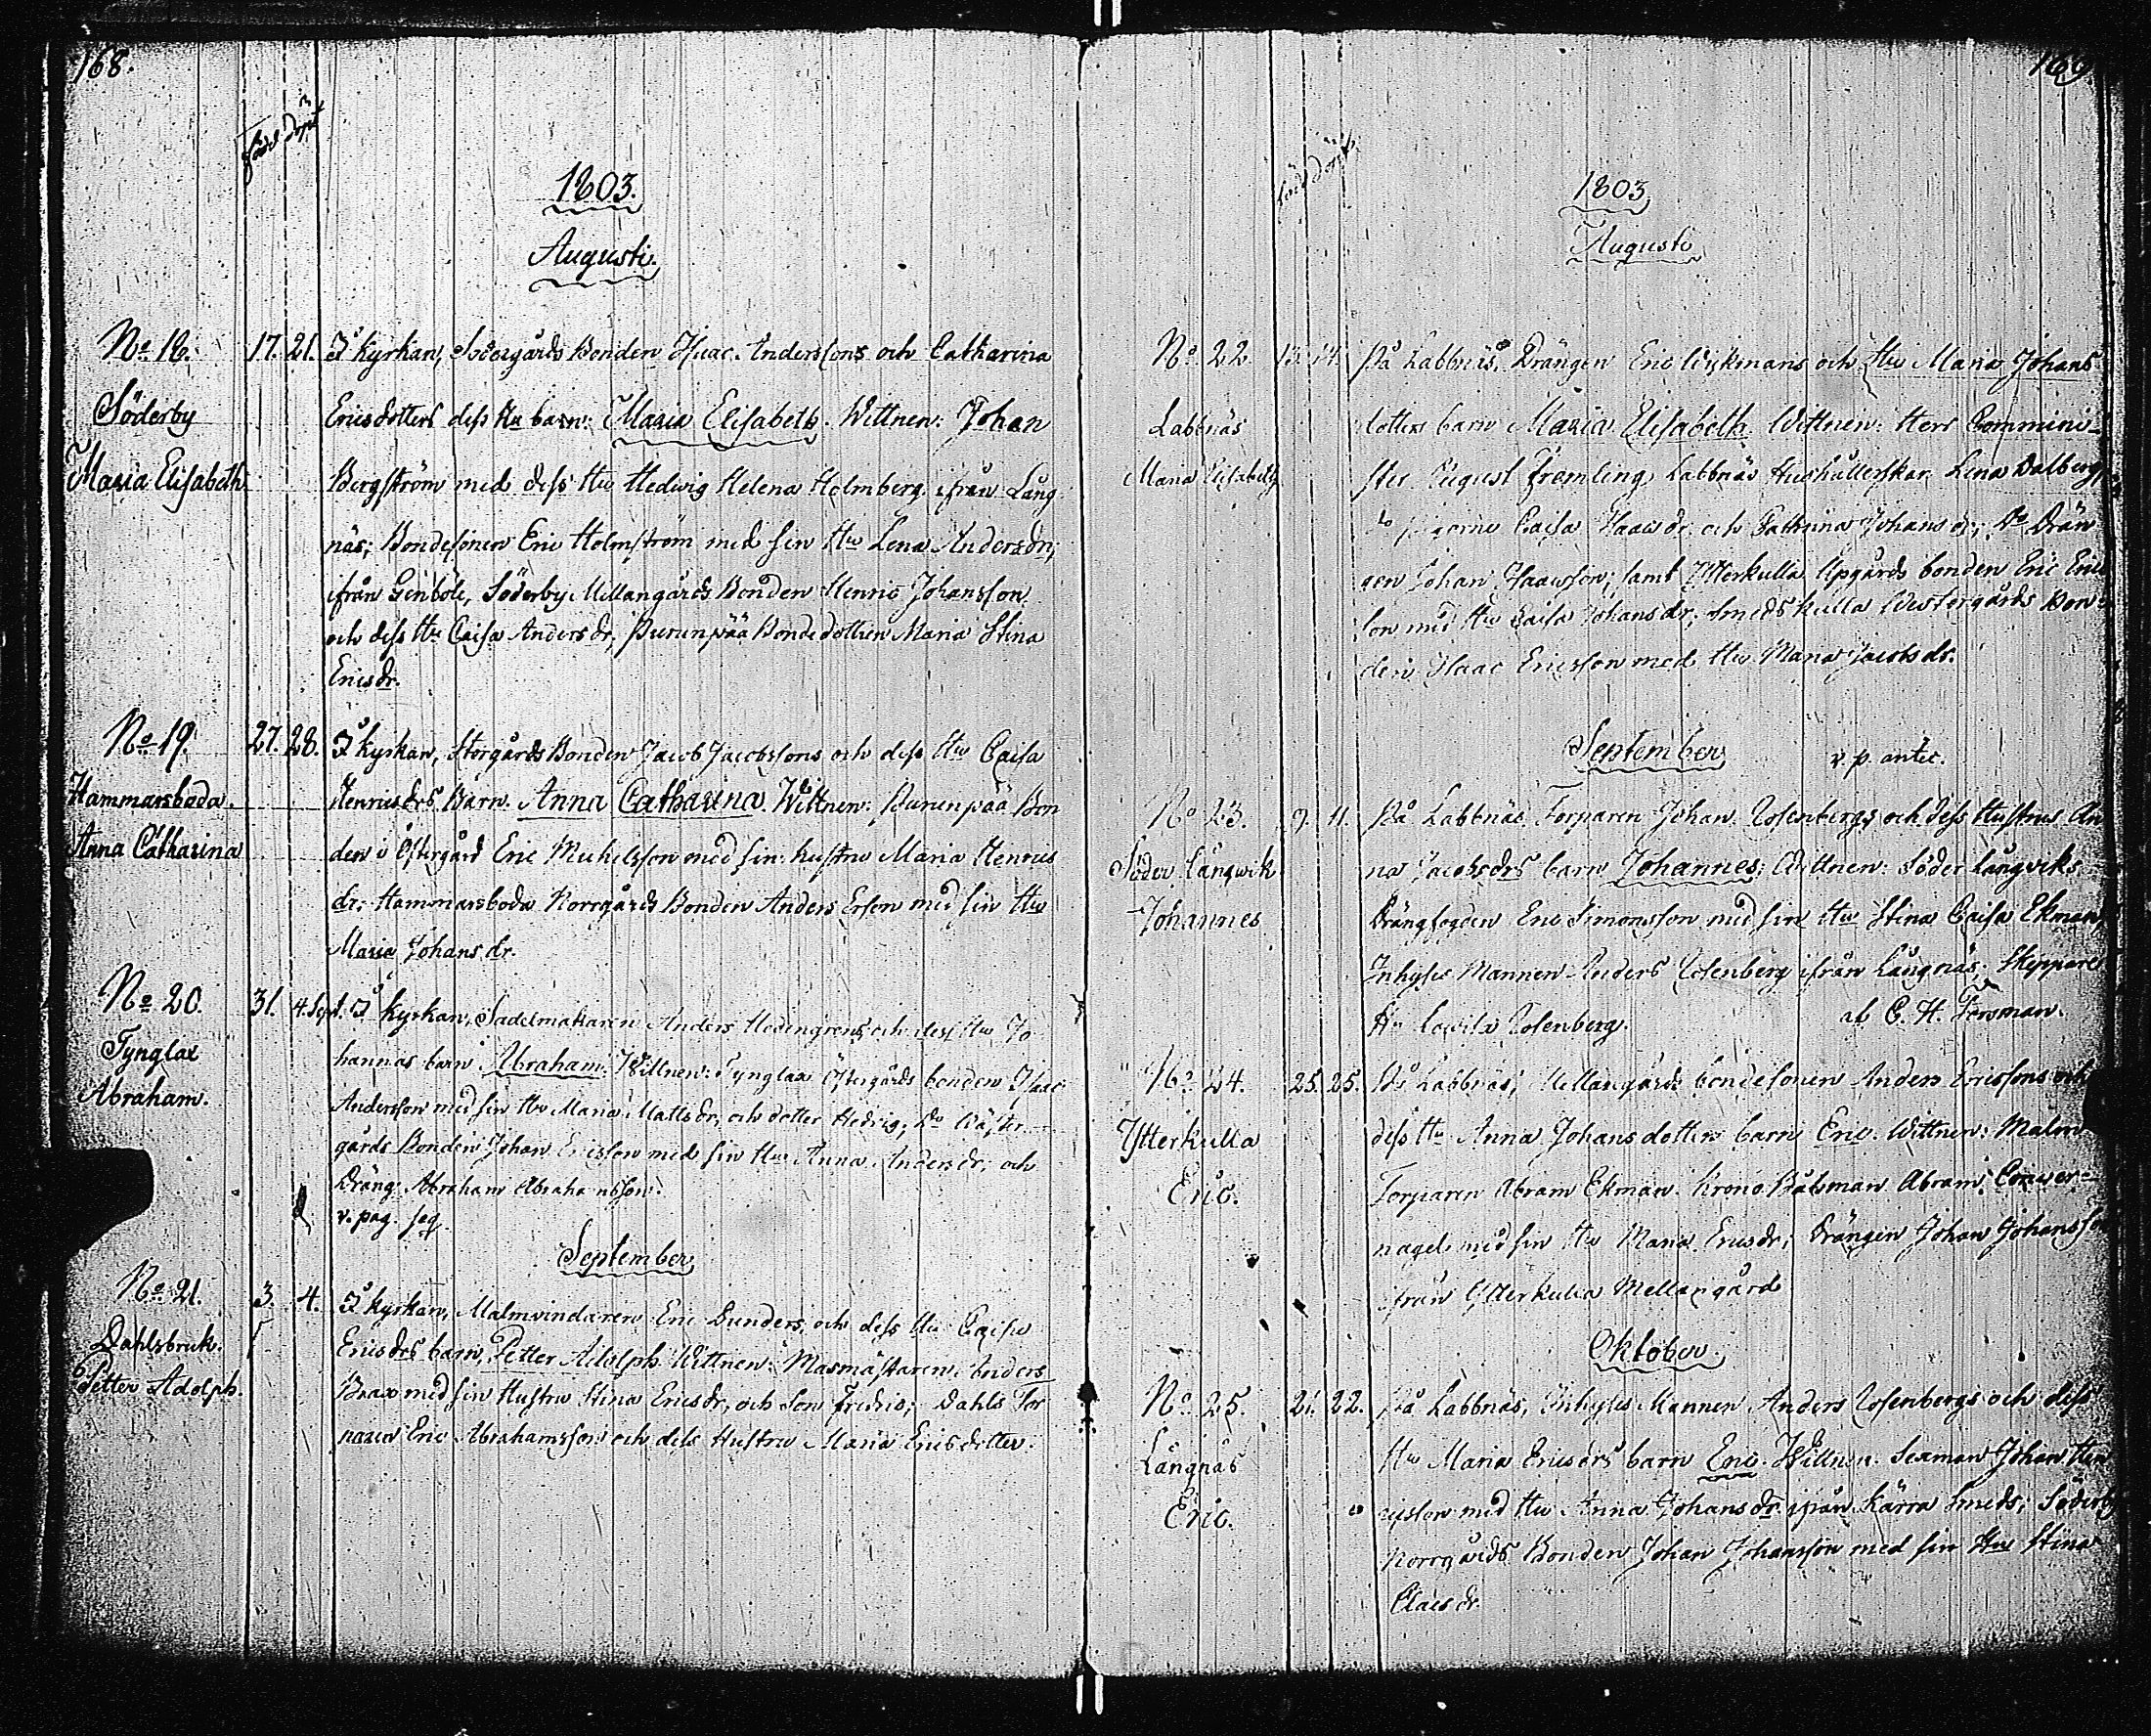 168.
född döpt
1803.
Augusti.
No 18. 17. 21. I kyrkan, Södergårds Bonden Isaac Anderssons och Catharina
Söderby
Ericsdotters dess Hu barn: Maria Elisabeth. Wittnen: Johan
Maria Elisabeth
Bergström med dess Hu Hedwig Helena Holmberg ifrån Lång
näs; Bondesonen Eric Holmström med sin Hu Lena Andersdr,
ifrån Genböle, Söderby Mellangårds Bonden Henric Johansson
och dess Hu Caisa Andersdr, Purunpää Bondedottren Maria Stina
Ericsdr.
No 19. 27. 28. I kyrkan, Storgårds Bonden Jacob Jacobssons och dess Hu Caisa
Hammarsboda.
Henricsdrs Barn. Anna Catharina. Wittnen: Purunpää Bon
Anna Catharina
den i Östergård Eric Michelsson med sin hustru Maria Henrics
dr; Hammarsboda Norrgårds Bonden Anders Ersson med sin Hu
Maria Johansdr.
No 20. 31. 4. Sept. I kyrkan, Sadelmakaren Anders Hedengrens och dess Hu Jo
Tynglax
hannas barn Abraham. Wittnen: Tynglax Östergårds bonden Isaac
Abraham.
Andersson med sin Hu Maria Mattsdr, och dotter Hedvig; Do Wäster
gårds Bonden Johan Ericsson med sin Hu Anna Andersdr, och
Dräng Abraham Abrahamsson.
v. pag. seq
September
No 21. 3. 4. I kyrkan, Malmvindaren Eric Lunders, och dess Hu Caisa
Dahlsbruk.
Ericsdrs barn, Petter Adolph. Wittnen: Masmästaren Anders
Petter Adolph.
Brax med sin Hustru Stina Ericsdr, och Son Fredric; Dahls Tor
paren Eric Abrahamsson och dess Hustru Maria Ericsdotter.
169
född döpt
1803
Augusti
No 22. 13. 14. På Labbnäs, Drängen Eric Wikmans och Hu Maria Johans
Labbnäs
dotters barn Maria Elisabeth. Wittnen: Herr Commini-
Maria Elisabeth
ster August Fremling, Labbnäs Hushållerskan Lena Dalberg,
do pigorne Caisa Isacsdr och Cathrina Johansdr; Do Drän
gen Johan Isaacsson; samt Ytterkulla Opgårds bonden Eric Erics
son med Hu Caisa Johansdr, Smedskulla Westergårds Bon-
den Isaac Ericsson med Hu Maria Jacobsdr.
September
v. p. antec.
No 23. 9. 11. På Labbnäs Torparen Johan Rosenbergs och dess Hustrus An
Söder Långwik
na Jacobsdrs barn Johannes; Wittnen: Söder Långviks
Johannes
Drängfogden Eric Simonsson med sin Hu Stina Caisa Ekman,
Inhyses Mannen Anders Rosenberg ifrån Långnäs; Skeppare
Hu Lovisa Rosenberg.
af C. H. Forsman.
No 24. 25. 25. På Labbnäs, Mellangårds bondesonen Anders Ericssons och
Ytterkulla
dess Hu Anna Johansdotters barn Eric. Wittnen: Malm
Eric.
Torparen Abram Ekman. Krono Båtsman Abram
nagel med sin Hu Maria Ericsdr; Drängen Johan Johansson
ifrån Ytterkulla Mellangård
Oktober.
No 25. 21. 22. På Labbnäs, Inhyses Mannen Anders Rosenbergs och dess
Långnäs
Hu Maria Ericsdrs barn Eric. Wittnen: Sexman Johan Hen
Eric.
ricsson med Hu Anna Johansdr ifrån Kärra Smeds; Söderby
Norrgårds Bonden Johan Johansson med sin Hu Stina
Claesdr.